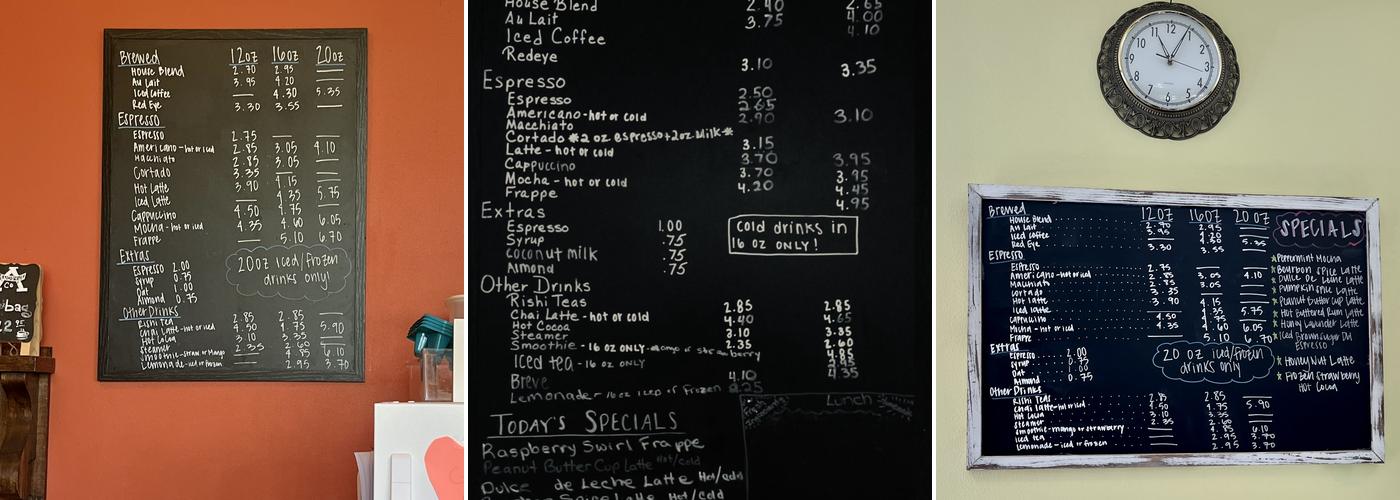 Brewed 12oz 16oz 20oz
House Blend 2.70 2.95
Au Lait 3.95 4.20
Iced Coffee 4.30 5.35
Red Eye 3.30 3.55
Espresso
Espresso 2.75
Americano-hot or iced 2.85 3.05 4.10
Macchiato 2.85 3.05
Cortado 3.35
Hot Latte 3.90 4.15
Iced Latte 4.35 5.75
Cappuccino 4.50 4.75
Mocha-hot or iced 4.35 4.60 6.05
Frappe 5.10 6.70
Extras
Espresso 2.00
Syrup 0.75
Oat 1.00
Almond 0.75
20oz iced/frozen
drinks only!
Other Drinks
Rishi Teas 2.85 2.85
Chai Latte-hot or iced 4.50 4.75 5.90
Hot Cocoa 3.10 3.35
Steamer 2.35 2.60
Smoothie-straw or Mango 4.85 6.10
Lemonade-iced or frozen 2.95 3.70
bag
House Blend 2.40 2.65
Au Lait 3.75 4.00
Iced Coffee 4.10
Redeye 3.10 3.35
Espresso
Espresso 2.50
Americano-hot or cold 2.65
Macchiato 2.90 3.10
Cortado *2 oz espresso+2oz milk*
Latte-hot or cold 3.15
Cappuccino 3.70 3.95
Mocha-hot or cold 3.70 3.95
Frappe 4.20 4.45
4.95
Extras
Espresso 1.00
Syrup .75
coconut milk .75
Almond .75
Cold drinks in
16 oz ONLY!
Other Drinks
Rishi Teas 2.85 2.85
Chai Latte-hot or cold
Hot Cocoa 3.10 3.35
Steamer 2.35 2.60
Smoothie-16 oz ONLY-mango or strawberry 4.85
Iced tea-16 oz ONLY
Breve 4.10 4.35
Lemonade-16oz iced or frozen
Lunch
TODAY'S SPECIALS
Raspberry Swirl Frappe
Peanut Butter Cup Latte Hot/cold
Dulce de Leche Latte Hot/cold
Latte Hot/cold
12 11 10 9 8 7 6 5 4 3 2 1
Brewed 12oz 16oz 20oz
House Blend 2.70 2.95
Au Lait 3.95 4.20
Iced Coffee 4.30 5.35
Red Eye 3.30 3.55
Espresso
Espresso 2.75
Americano-hot or iced 2.85 3.05 4.10
Macchiato 2.85 3.05
Cortado 3.35
Hot latte 3.90 4.15
Iced latte 4.35 5.75
Cappuccino 4.50 4.75
Mocha-hot or iced 4.35 4.60 6.05
Frappe 5.10 6.70
Extras
Espresso 2.00
Syrup 0.75
Oat 1.00
Almond 0.75
20 oz iced/frozen
drinks only
Other Drinks
Rishi Teas 2.85 2.85
Chai latte-hot or iced 4.50 4.75 5.90
Hot Cocoa 3.10 3.35
Steamer 2.35 2.60
Smoothie-mango or strawberry 4.85 6.10
Iced tea 2.95 3.70
Lemonade-iced or frozen 2.95 3.70
SPECIALS
Peppermint Mocha
Bourbon Spice Latte
Dulce De Leche Latte
Pumpkin Spice Latte
Peanut Butter Cup Latte
Hot Buttered Rum Latte
Honey Lavender Latte
Iced Brown Sugar Oat
Espresso
Honey Nut Latte
Frozen Strawberry
Hot Cocoa